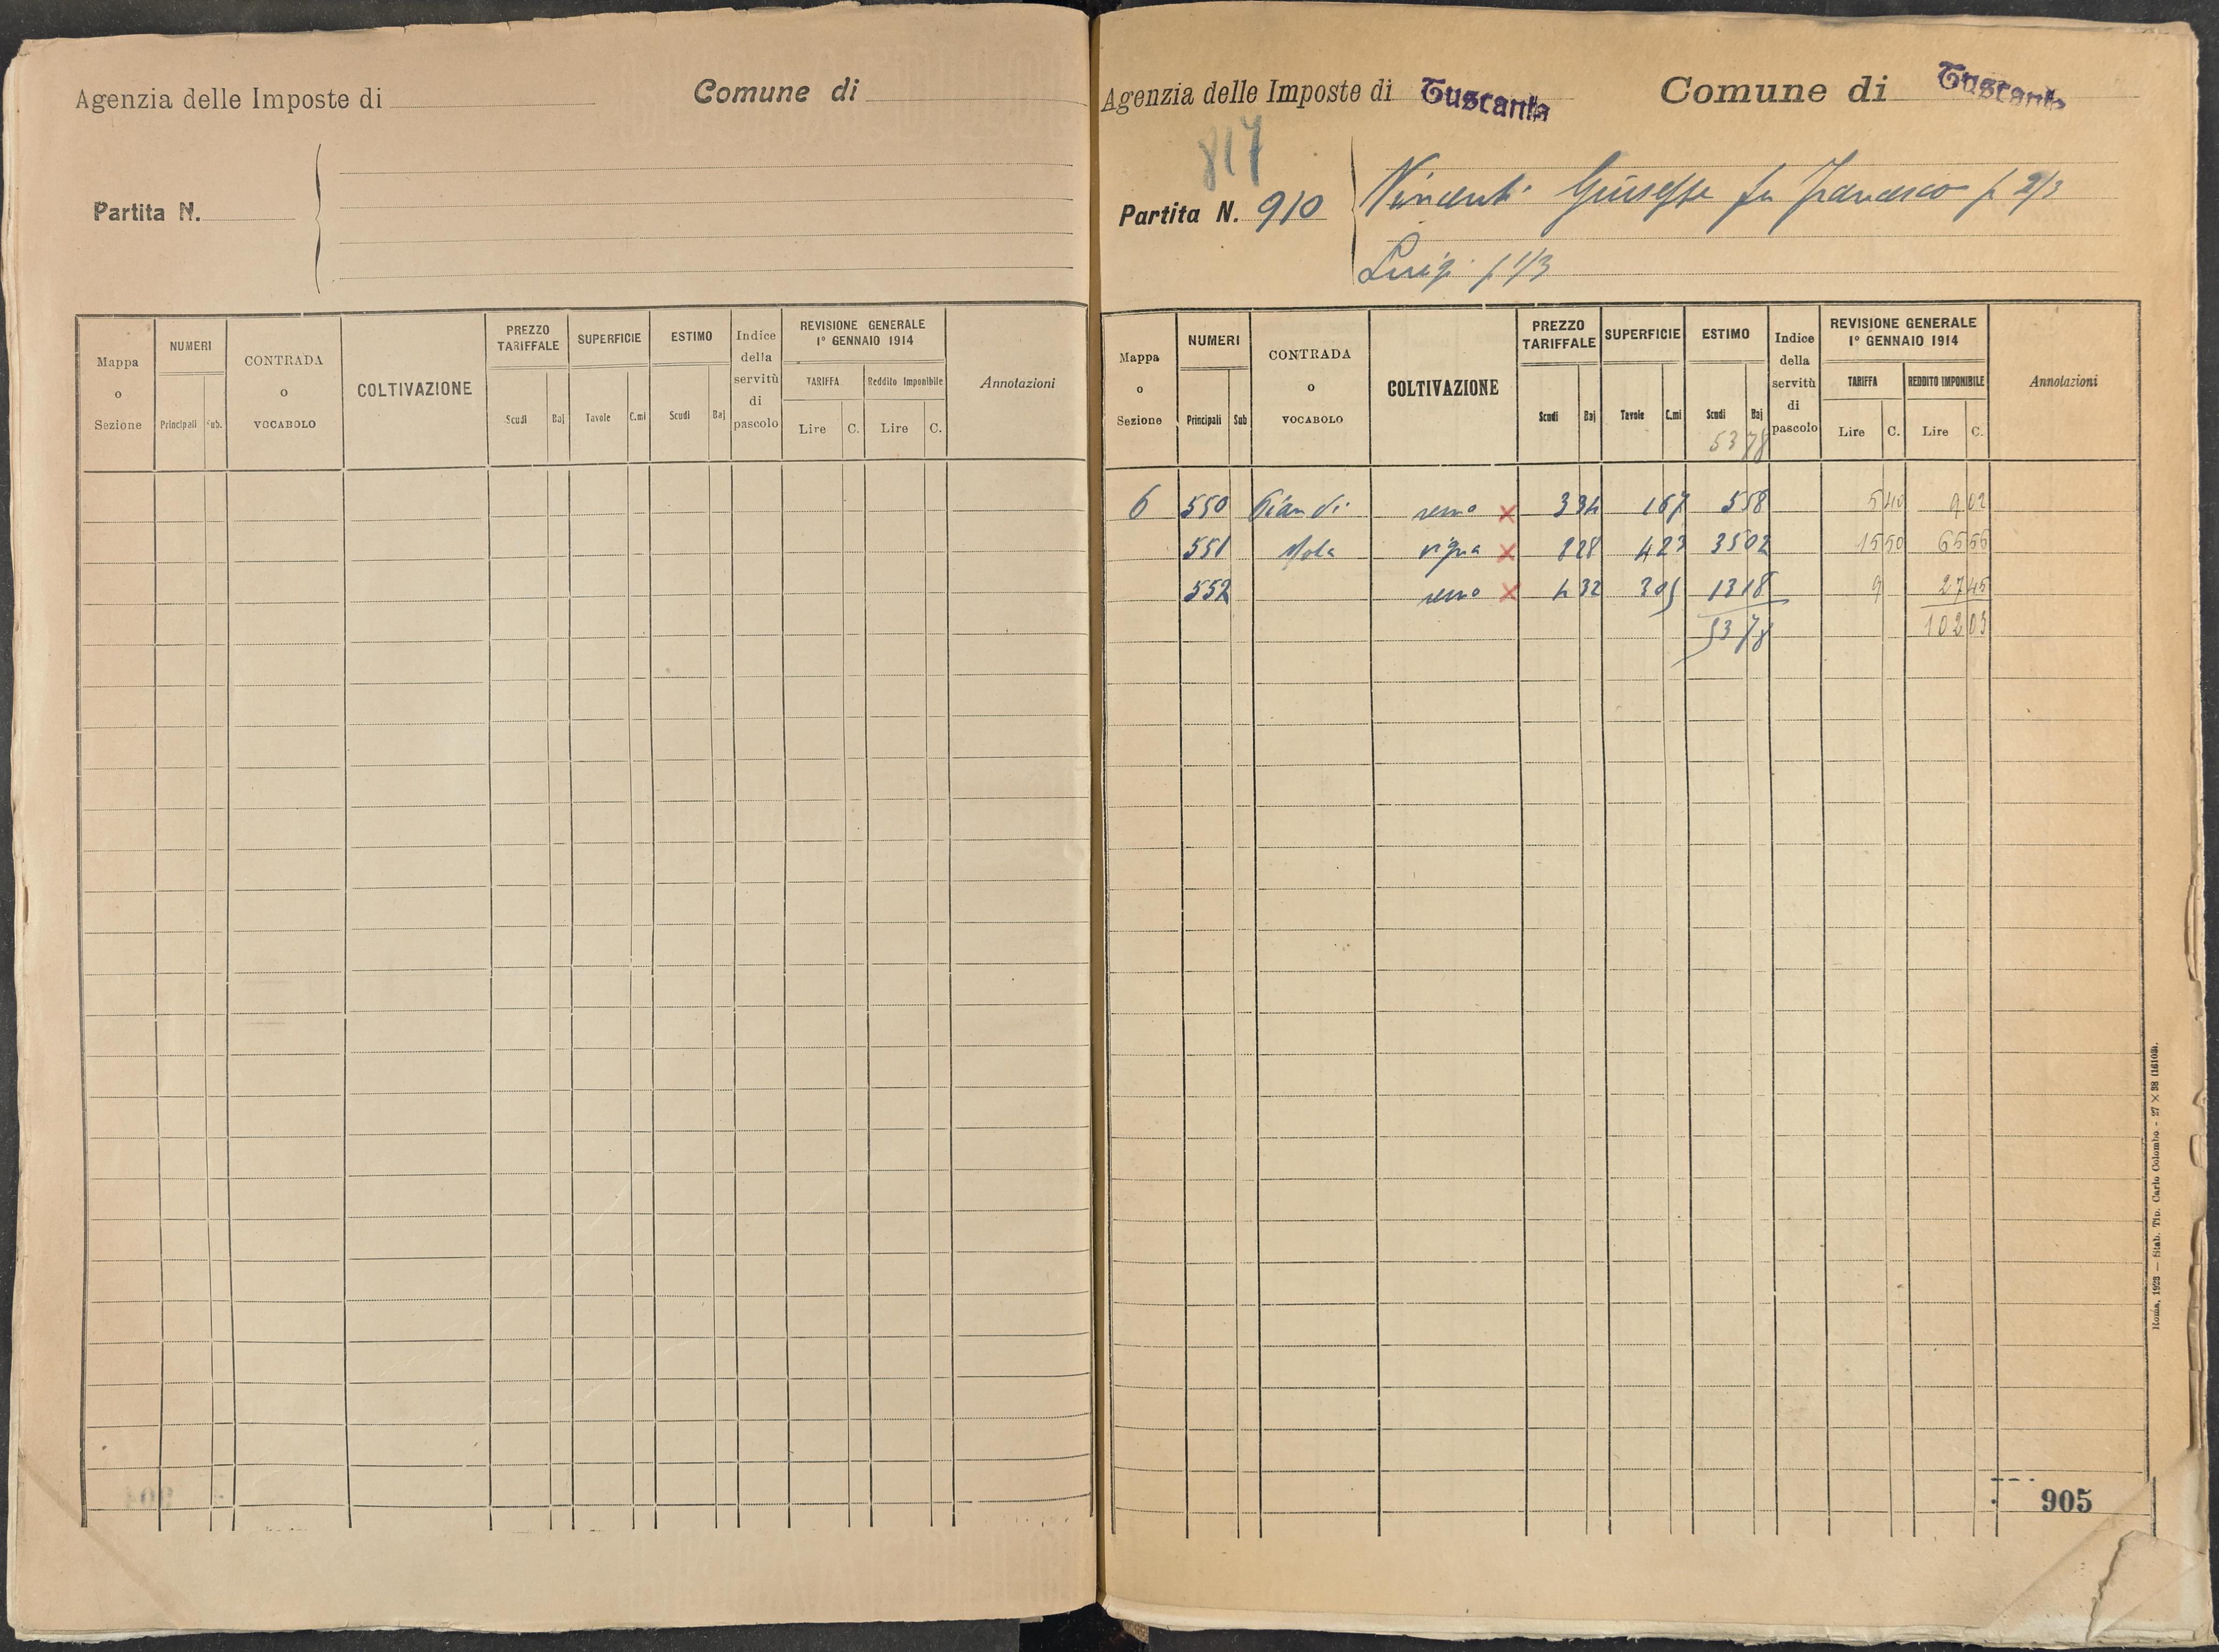 Agenzia delle Imposte di
Comune di
Partita N.
Mappa o Sezione
NUMERI
Principali
Sub.
CONTRADA o VOCABOLO
COLTIVAZIONE
PREZZO TARIFFALE
Scudi
Baj
SUPERFICIE
Tavole
C.mi
ESTIMO
Scudi
Baj
Indice della servitù di pascolo
REVISIONE GENERALE
1° GENNAIO 1914
TARIFFA
Reddito Imponibile
Lire
C.
Lire
C.
Annotazioni
Agenzia delle Imposte di Tuscania
Comune di Tuscania
817
Partita N. 910
Vincenti Giuseppe fu Francesco p 2/3
Luigi p 1/3
Mappa o Sezione
NUMERI
Principali
Sub
CONTRADA o VOCABOLO
COLTIVAZIONE
PREZZO TARIFFALE
Scudi
Baj
SUPERFICIE
Tavole
C.mi
ESTIMO
Scudi
Baj
53 78
Indice della servitù di pascolo
REVISIONE GENERALE
1° GENNAIO 1914
TARIFFA
REDDITO IMPONIBILE
Lire
C.
Lire
C.
Annotazioni
6 550 Pian di semo x 3 34 1 67 5 58 5 40 9 02
551 Mola vigna x 8 28 4 23 35 02 15 50 65 56
552 semo x 4 32 3 05 13 18 9 27 45
53 78 102 03
Roma, 1923 — Stab. Tip. Carlo Colombo - 27 × 38 (16103).
905